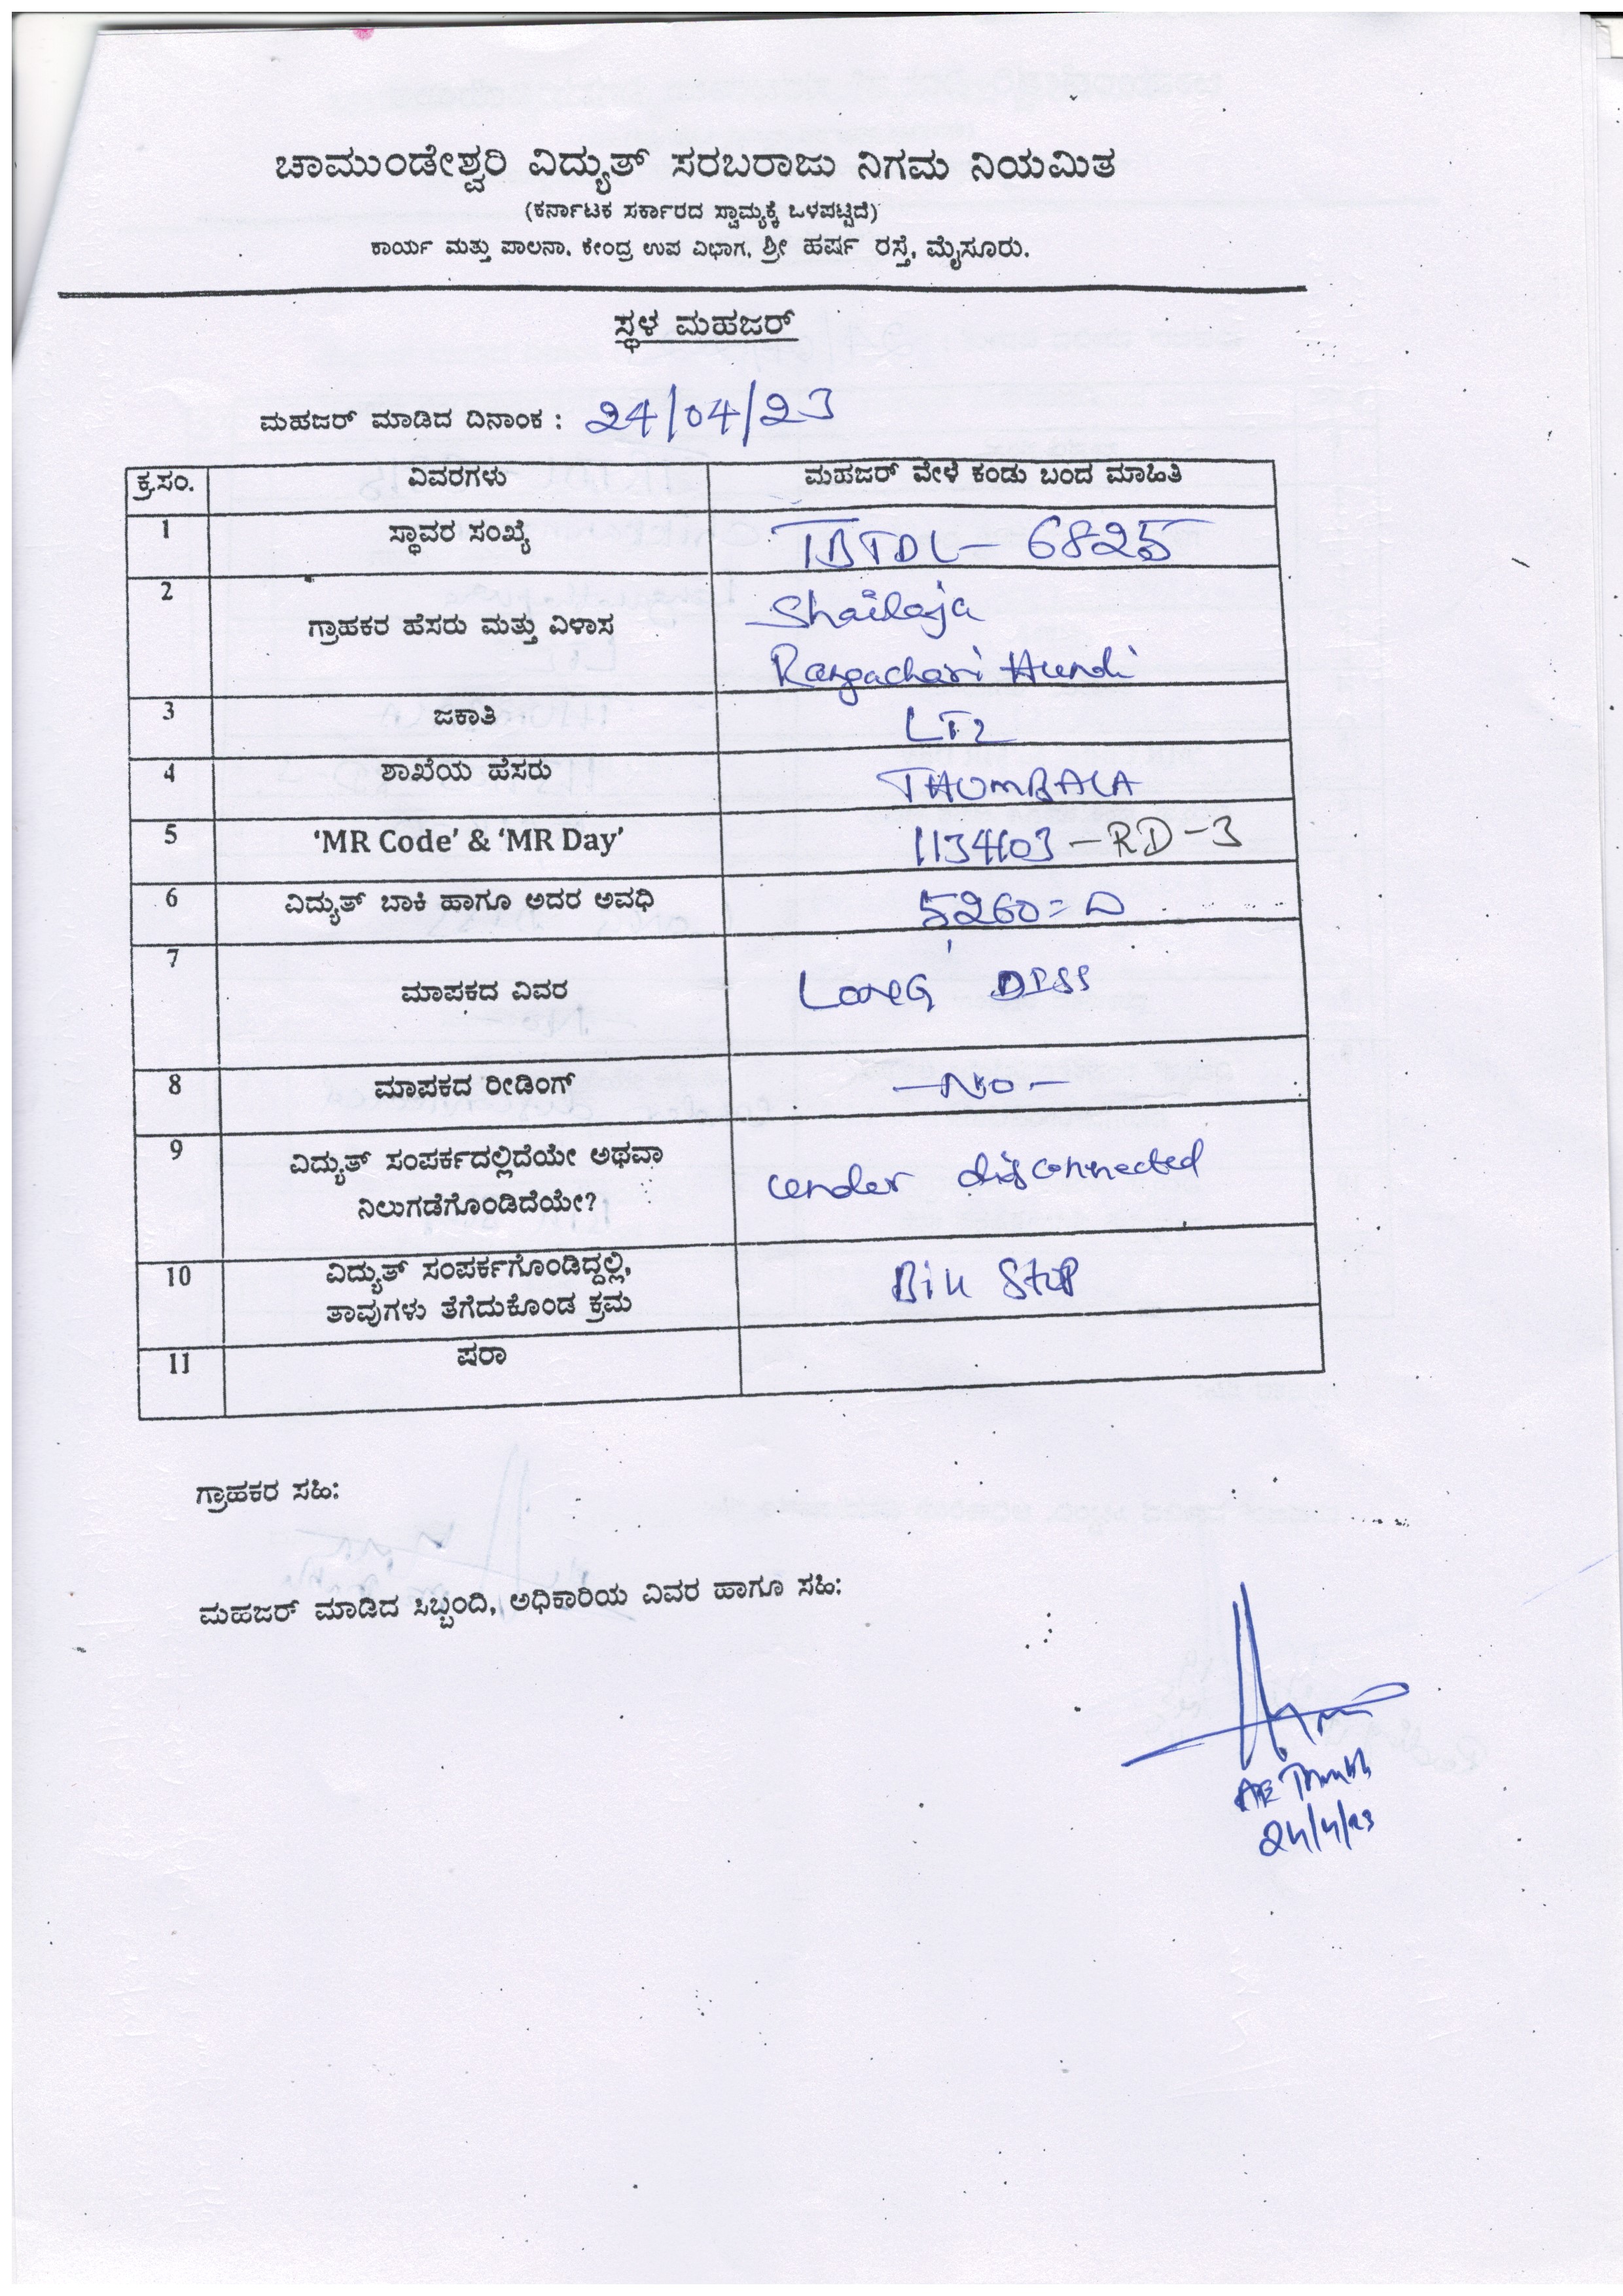 ಚಾಮುಂಡೇಶ್ವರಿ ವಿದ್ಯುತ್ ಸರಬರಾಜು ನಿಗಮ ನಿಯಮಿತ
(ಕರ್ನಾಟಕ ಸರ್ಕಾರದ ಸ್ವಾಮ್ಯಕ್ಕೆ ಒಳಪಟ್ಟಿದೆ)
ಕಾರ್ಯ ಮತ್ತು ಪಾಲನಾ. ಕೇಂದ್ರ ಉಪ ವಿಭಾಗ, ಶ್ರೀ ಹರ್ಷ ರಸ್ತೆ, ಮೈಸೂರು.
ಸ್ಥಳ ಮಹಜರ್
ಮಹಜರ್ ಮಾಡಿದ ದಿನಾಂಕ : 24/04/23
ಕ್ರ.ಸಂ. ವಿವರಗಳು ಮಹಜರ್ ವೇಳೆ ಕಂಡು ಬಂದ ಮಾಹಿತಿ
1 ಸ್ಥಾವರ ಸಂಖ್ಯೆ TBTDL - 6825
2 ಗ್ರಾಹಕರ ಹೆಸರು ಮತ್ತು ವಿಳಾಸ Shailaja
Rangachari Hundi
3 ಜಕಾತಿ LT2
4 ಶಾಖೆಯ ಹೆಸರು THUMBALA
5 ‘MR Code’ & ‘MR Day’ 1134103 - RD - 3
6 ವಿದ್ಯುತ್ ಬಾಕಿ ಹಾಗೂ ಅದರ ಅವಧಿ 5260=
7 ಮಾಪಕದ ವಿವರ LONG DISS
8 ಮಾಪಕದ ರೀಡಿಂಗ್ - No -
9 ವಿದ್ಯುತ್ ಸಂಪರ್ಕದಲ್ಲಿದೆಯೇ ಅಥವಾ
ನಿಲುಗಡೆಗೊಂಡಿದೆಯೇ? under disconnected
10 ವಿದ್ಯುತ್ ಸಂಪರ್ಕಗೊಂಡಿದ್ದಲ್ಲಿ,
ತಾವುಗಳು ತೆಗೆದುಕೊಂಡ ಕ್ರಮ Bill Stop
11 ಷರಾ
ಗ್ರಾಹಕರ ಸಹಿ:
ಮಹಜರ್ ಮಾಡಿದ ಸಿಬ್ಬಂದಿ, ಅಧಿಕಾರಿಯ ವಿವರ ಹಾಗೂ ಸಹಿ:
24/4/23